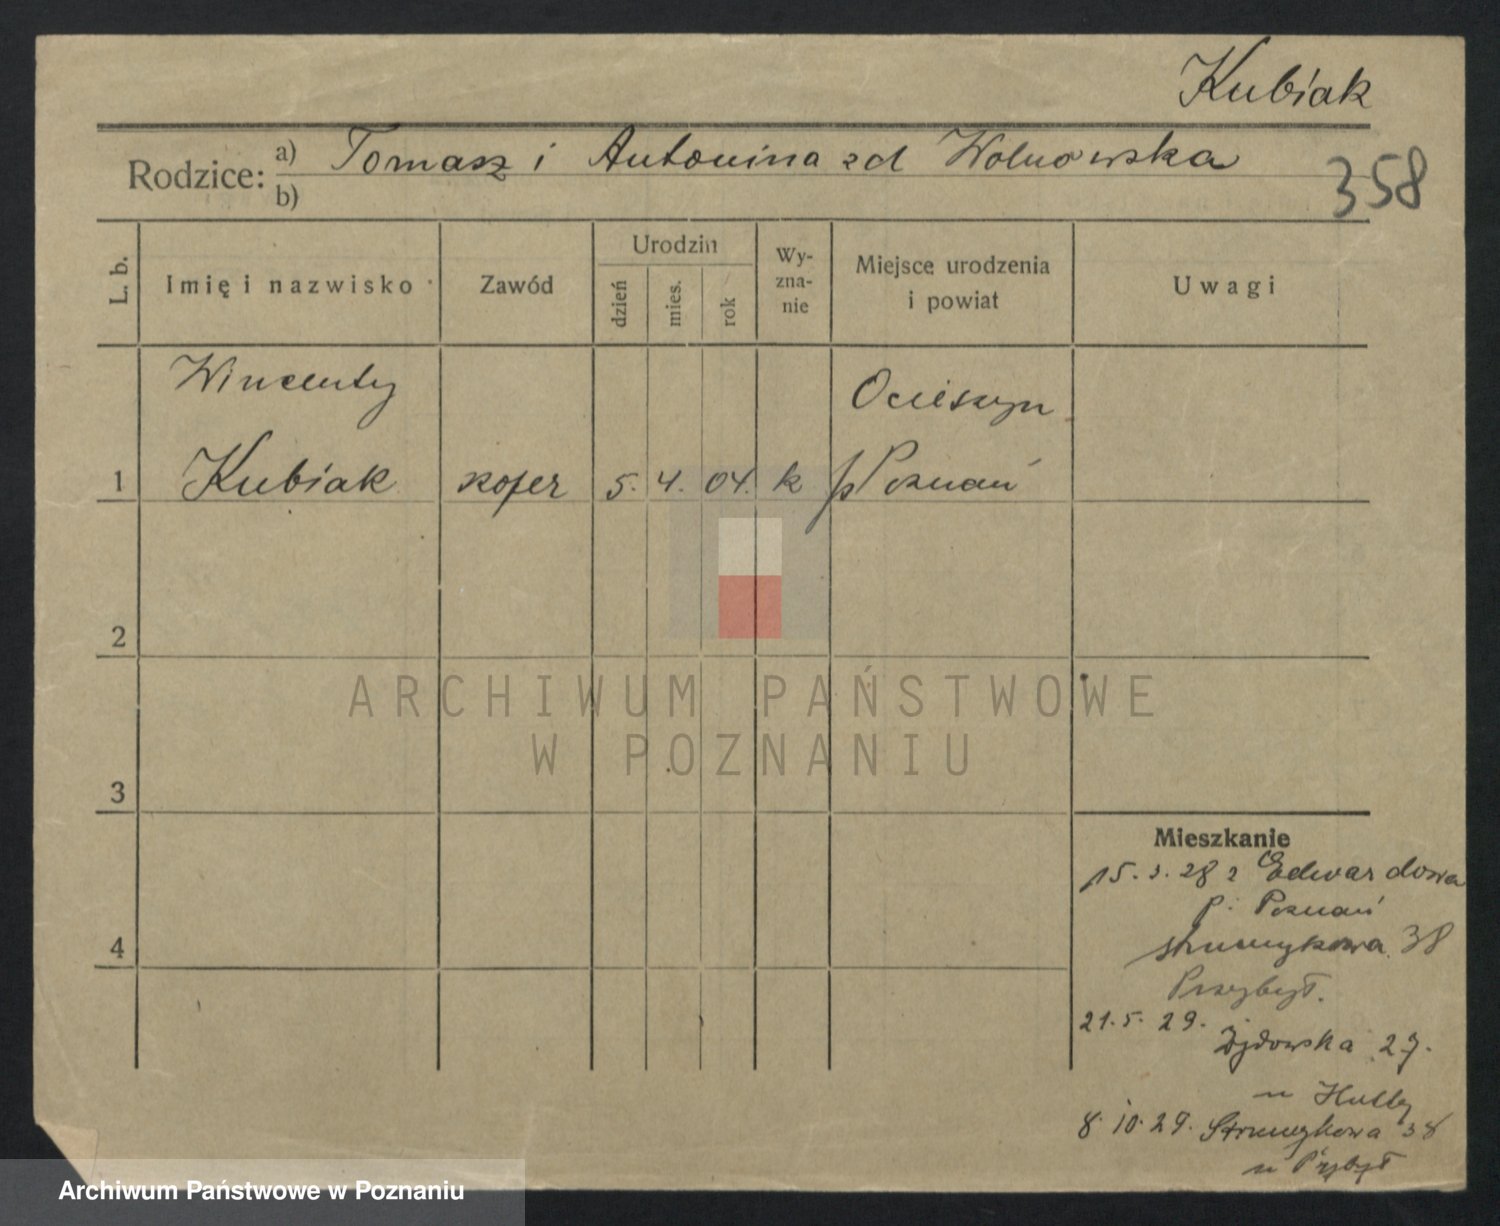 Kubiak
Rodzice: a) Tomasz i Antonina zd Wolnowska
b)
358
L. b.
Imię i nazwisko
Zawód
Urodzin
dzień
mies.
rok
Wy-
zna-
nie
Miejsce urodzenia
i powiat
Uwagi
Wincenty
Ocieszyn
1 Kubiak szofer 5. 4. 04. k p Poznań
2
ARCHIWUM PAŃSTWOWE
W POZNANIU
3
Mieszkanie
15. 3. 28 z Edwardowa
p. Poznań
4
Strumykowa 38
Przybył.
21. 5. 29.
27.
u
8. 10. 29. Strumykowa 38
u Przybył
Archiwum Państwowe w Poznaniu